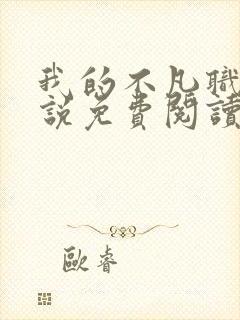 我的不凡職
說免費閱讀
歐睿